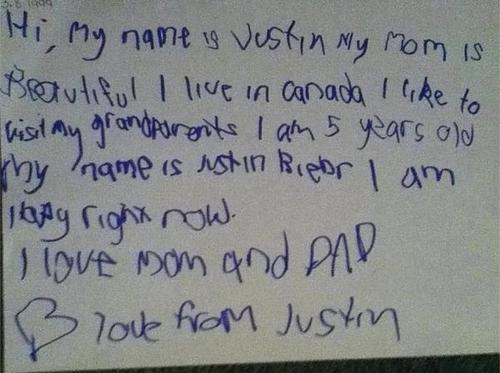 Hi, My name is Justin My Mom is
Beautiful I live in canada I like to
visit my grandparents I am 5 years old
My name is Justin Bieber I am
Happy right now.
I love Mom and DAD
love from Justin